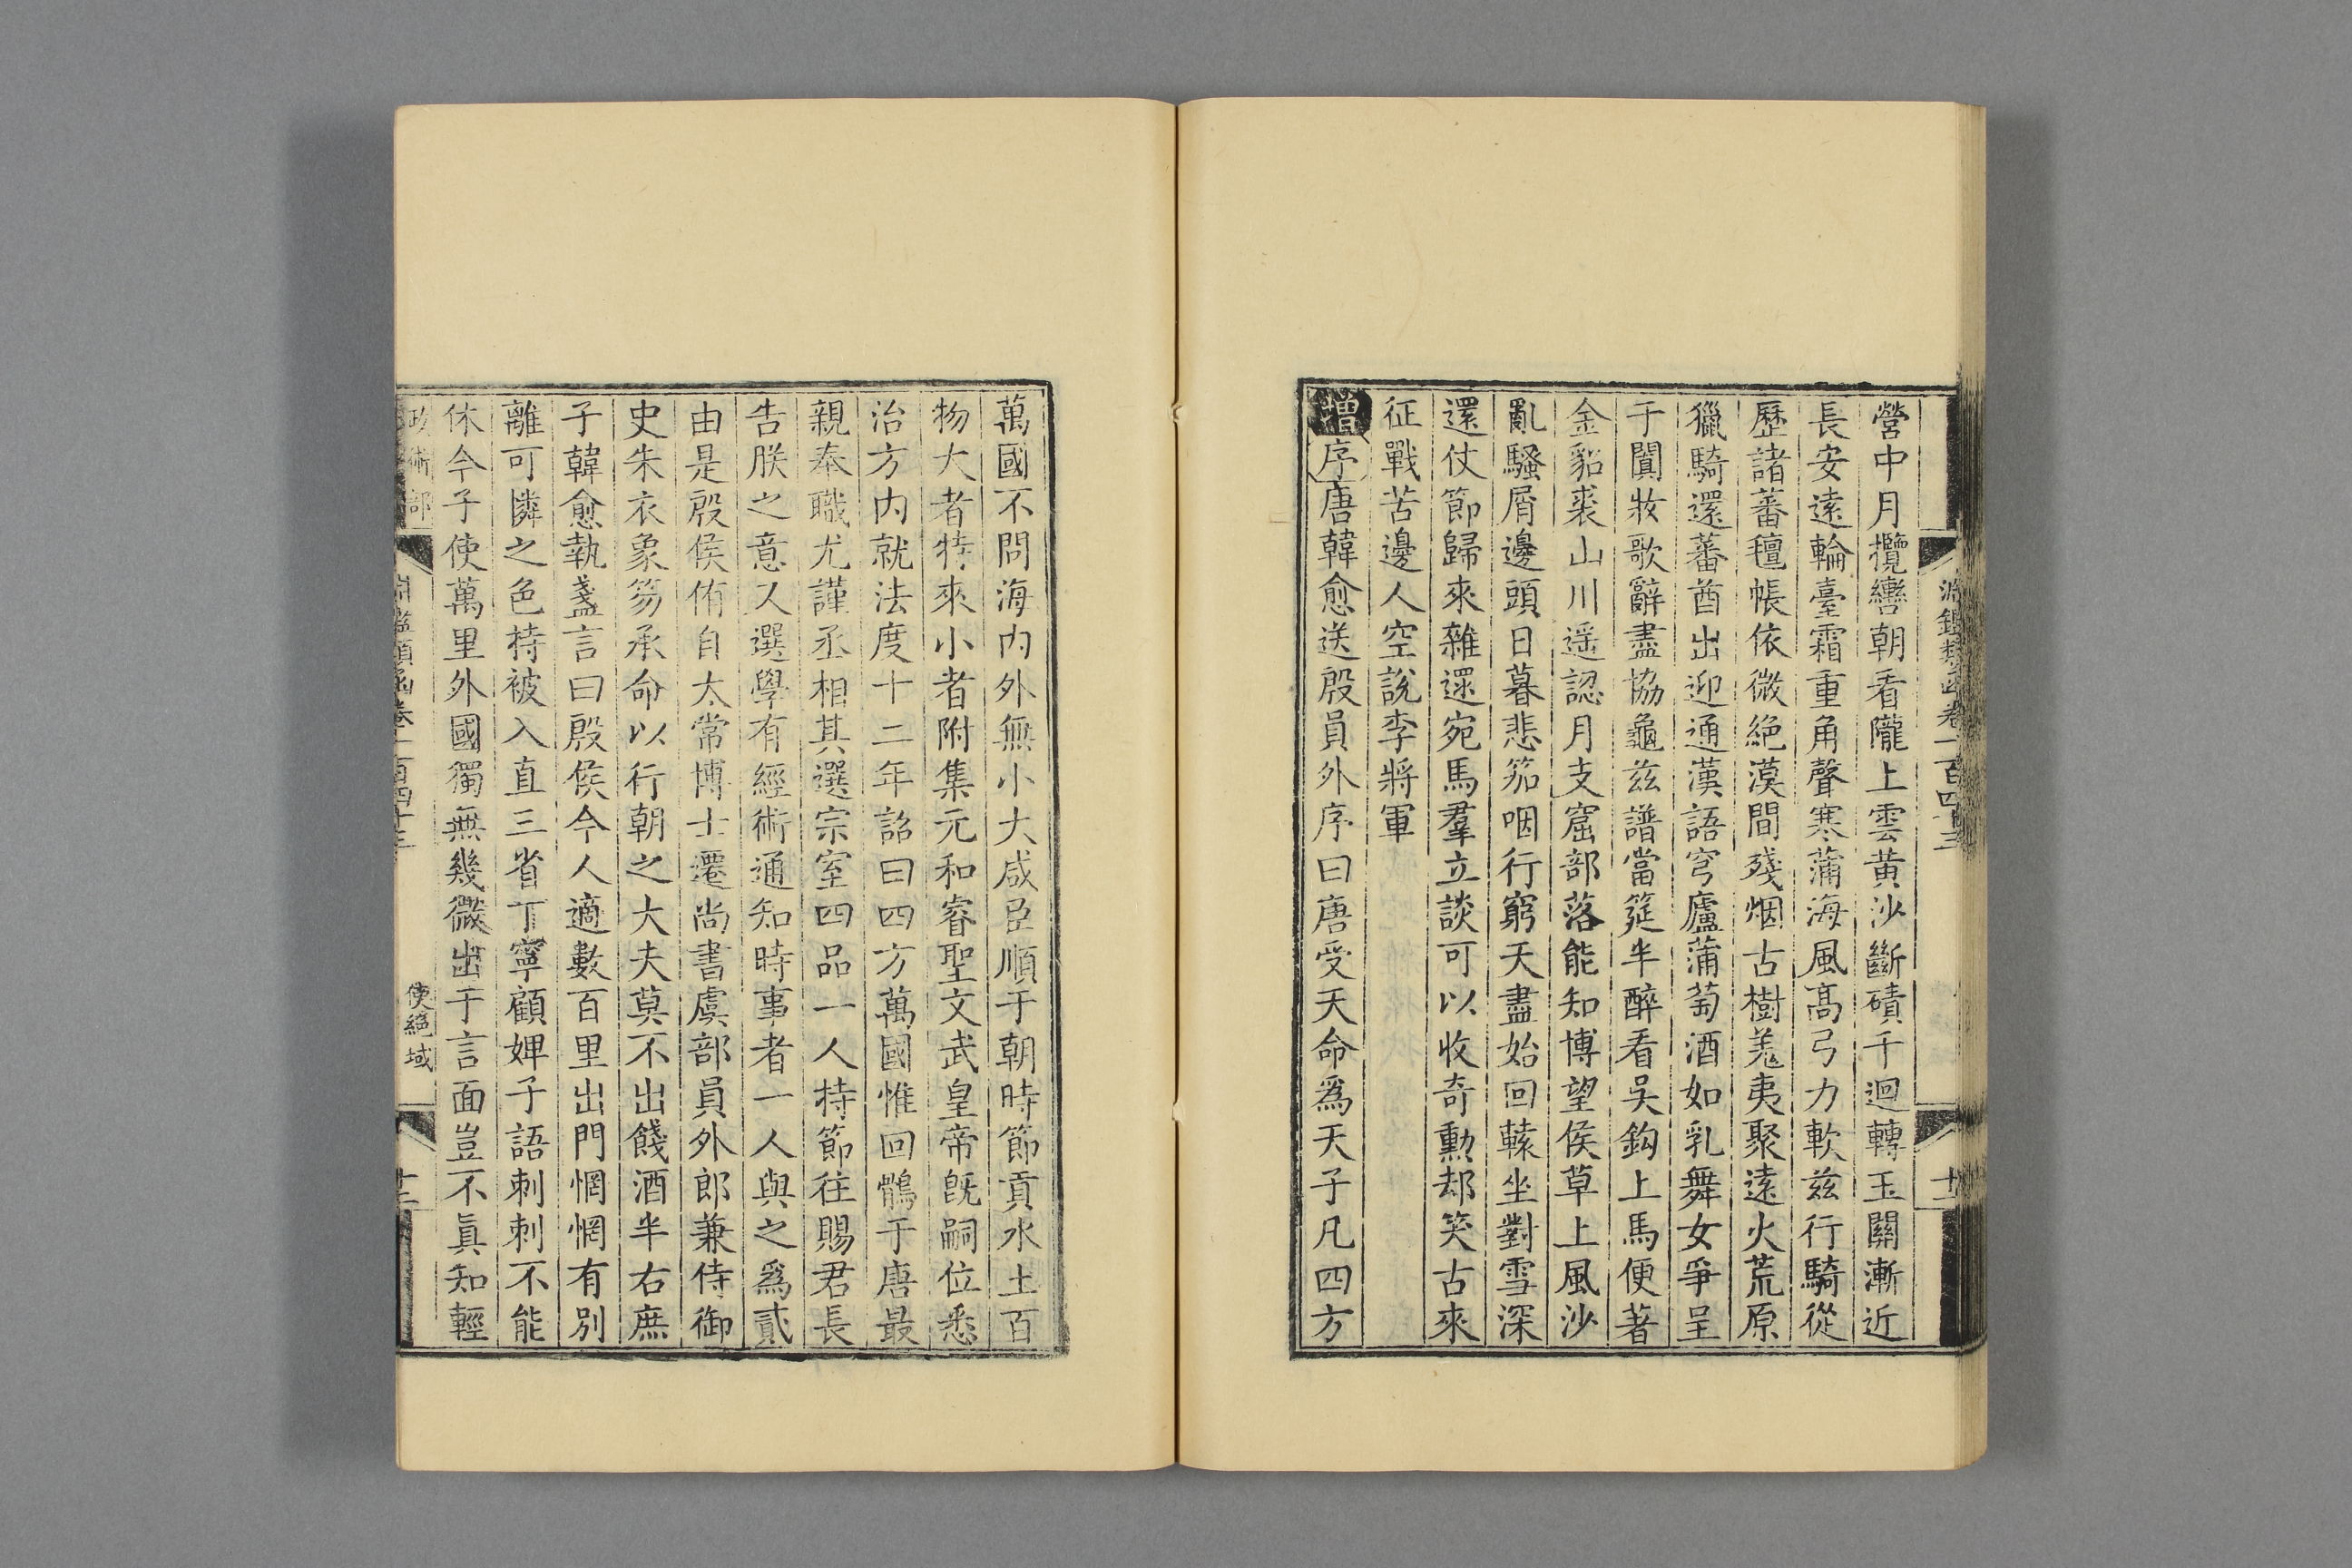 淵鑑類函卷一百四十三
營中月攬轡朝看隴上雲黃沙斷磧千迴轉玉關漸近
長安遠輪臺霜重角聲寒蒲海風高弓力軟茲行騎從
歷諸蕃氊帳依微絕漠間殘烟古樹羌夷聚遠火荒原
獵騎還蕃酋出迎通漢語穹廬蒲萄酒如乳舞女爭呈
于闐妝歌辭盡協龜茲譜當筵半醉看吳鈎上馬便著
金貂裘山川遥認月支窟部落能知博望侯草上風沙
亂騷屑邊頭日暮悲笳咽行窮天盡始回轅坐對雪深
還仗節歸來雜還宛馬羣立談可以收奇勳却笑古來
征戰苦邊人空說李將軍
增序唐韓愈送殷員外序曰唐受天命爲天子凡四方
萬國不問海內外無小大咸臣順于朝時節貢水土百
物大者特來小者附集元和睿聖文武皇帝旣嗣位悉
治方内就法度十二年詔曰四方萬國惟回鶻于唐最
親奉職尤謹丞相其選宗室四品一人持節往賜君長
告朕之意又選學有經術通知時事者一人與之爲貳
由是殷侯侑自太常博士遷尚書虞部員外郎兼侍御
史朱衣象笏承命以行朝之大夫莫不出餞酒半右庶
子韓愈執盞言曰殷侯今人適數百里出門惘惘有別
離可憐之色持被入直三省丁寧顧婢子語刺刺不能
休今子使萬里外國獨無幾微出于言面豈不眞知輕
政術部
淵鑑類函卷一百四十三
使絕域
十二